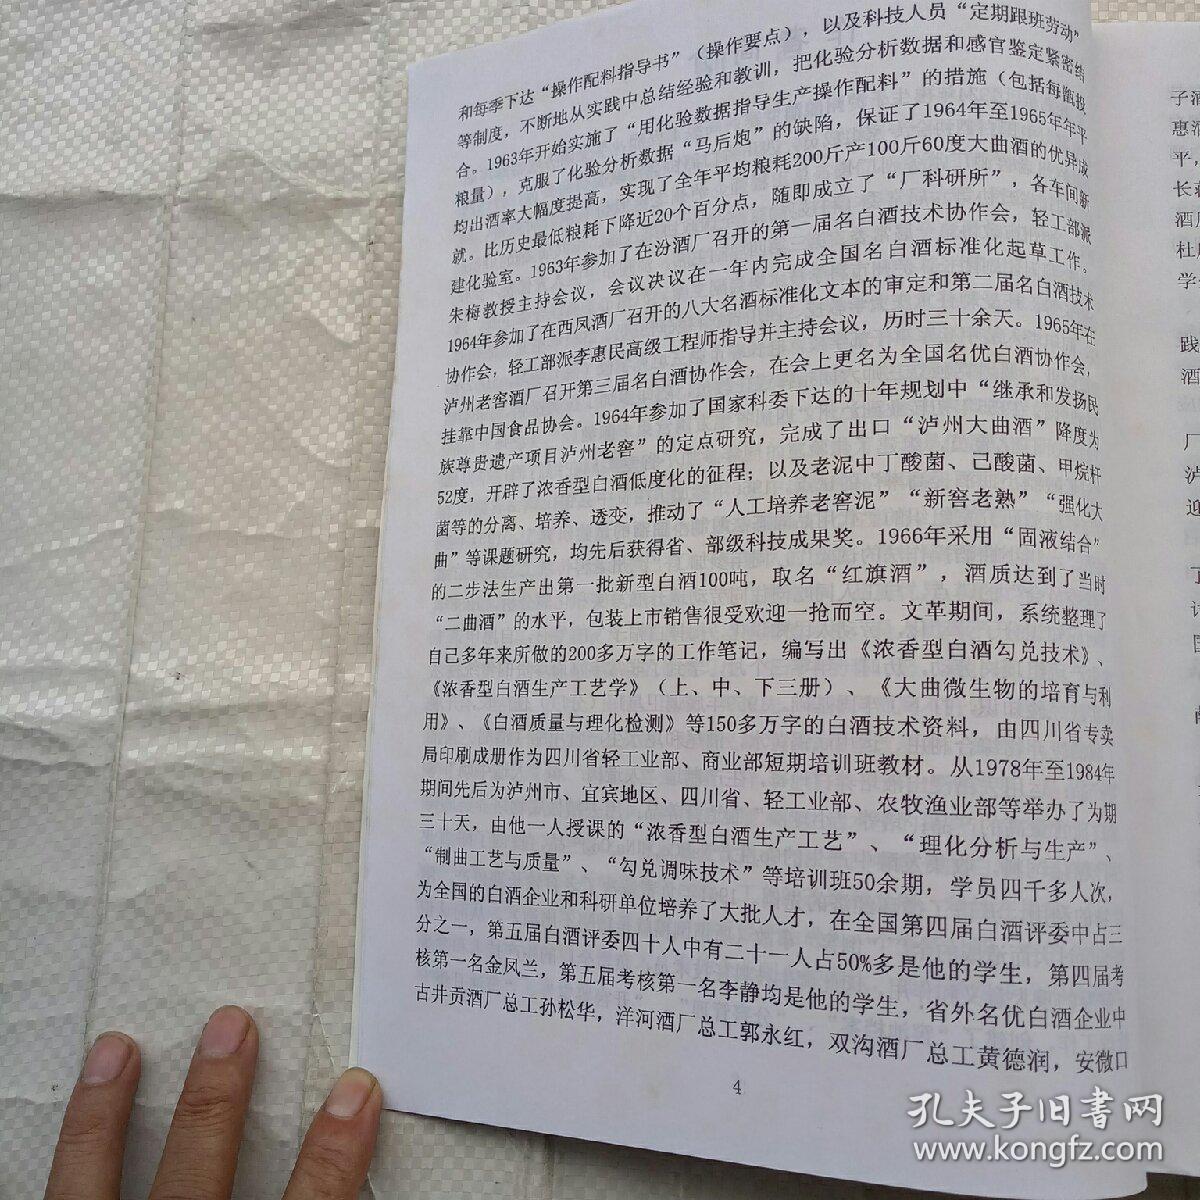 和每季下达“操作配料指导书”（操作要点），以及科技人员“定期跟班劳动”
等制度，不断地从实践中总结经验和教训，把化验分析数据和感官鉴定紧密结
合。1963年开始实施了“用化验数据指导生产操作配料”的措施（包括每甑投
粮量），克服了化验分析数据“马后炮”的缺陷，保证了1964年至1965年年平
均出酒率大幅度提高，实现了全年平均粮耗200斤产100斤60度大曲酒的优异成
就。比历史最低粮耗下降近20个百分点，随即成立了“厂科研所”，各车间新
建化验室。1963年参加了在汾酒厂召开的第一届名白酒技术协作会，轻工部派
朱梅教授主持会议，会议决议在一年内完成全国名白酒标准化起草工作。
1964年参加了在西凤酒厂召开的八大名酒标准化文本的审定和第二届名白酒技术
协作会，轻工部派李惠民高级工程师指导并主持会议，历时三十余天。1965年在
泸州老窖酒厂召开第三届名白酒协作会，在会上更名为全国名优白酒协作会，
挂靠中国食品协会。1964年参加了国家科委下达的十年规划中“继承和发扬民
族尊贵遗产项目泸州老窖”的定点研究，完成了出口“泸州大曲酒”降度为
52度，开辟了浓香型白酒低度化的征程；以及老泥中丁酸菌、己酸菌、甲烷杆
菌等的分离、培养、透变，推动了“人工培养老窖泥”“新窖老熟”“强化大
曲”等课题研究，均先后获得省、部级科技成果奖。1966年采用“固液结合”
的二步法生产出第一批新型白酒100吨，取名“红旗酒”，酒质达到了当时
“二曲酒”的水平，包装上市销售很受欢迎一抢而空。文革期间，系统整理了
自己多年来所做的200多万字的工作笔记，编写出《浓香型白酒勾兑技术》、
《浓香型白酒生产工艺学》（上、中、下三册）、《大曲微生物的培育与利
用》、《白酒质量与理化检测》等150多万字的白酒技术资料，由四川省专卖
局印刷成册作为四川省轻工业部、商业部短期培训班教材。从1978年至1984年
期间先后为泸州市、宜宾地区、四川省、轻工业部、农牧渔业部等举办了为期
三十天，由他一人授课的“浓香型白酒生产工艺”、“理化分析与生产”、
“制曲工艺与质量”、“勾兑调味技术”等培训班50余期，学员四千多人次，
为全国的白酒企业和科研单位培养了大批人才，在全国第四届白酒评委中占三
分之一，第五届白酒评委四十人中有二十一人占50%多是他的学生，第四届考
核第一名金凤兰，第五届考核第一名李静均是他的学生，省外名优白酒企业中
古井贡酒厂总工孙松华，洋河酒厂总工郭永红，双沟酒厂总工黄德润，安微口
4
子酒
惠酒
平，
长
酒
杜
学
践
酒
厂
泸
迎
孔夫子旧书网
www.kongfz.com